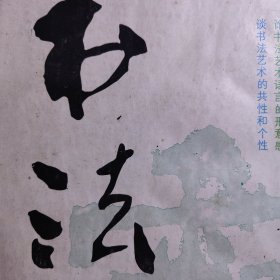 书法
论书法艺术语言的形意感
谈书法艺术的共性和个性